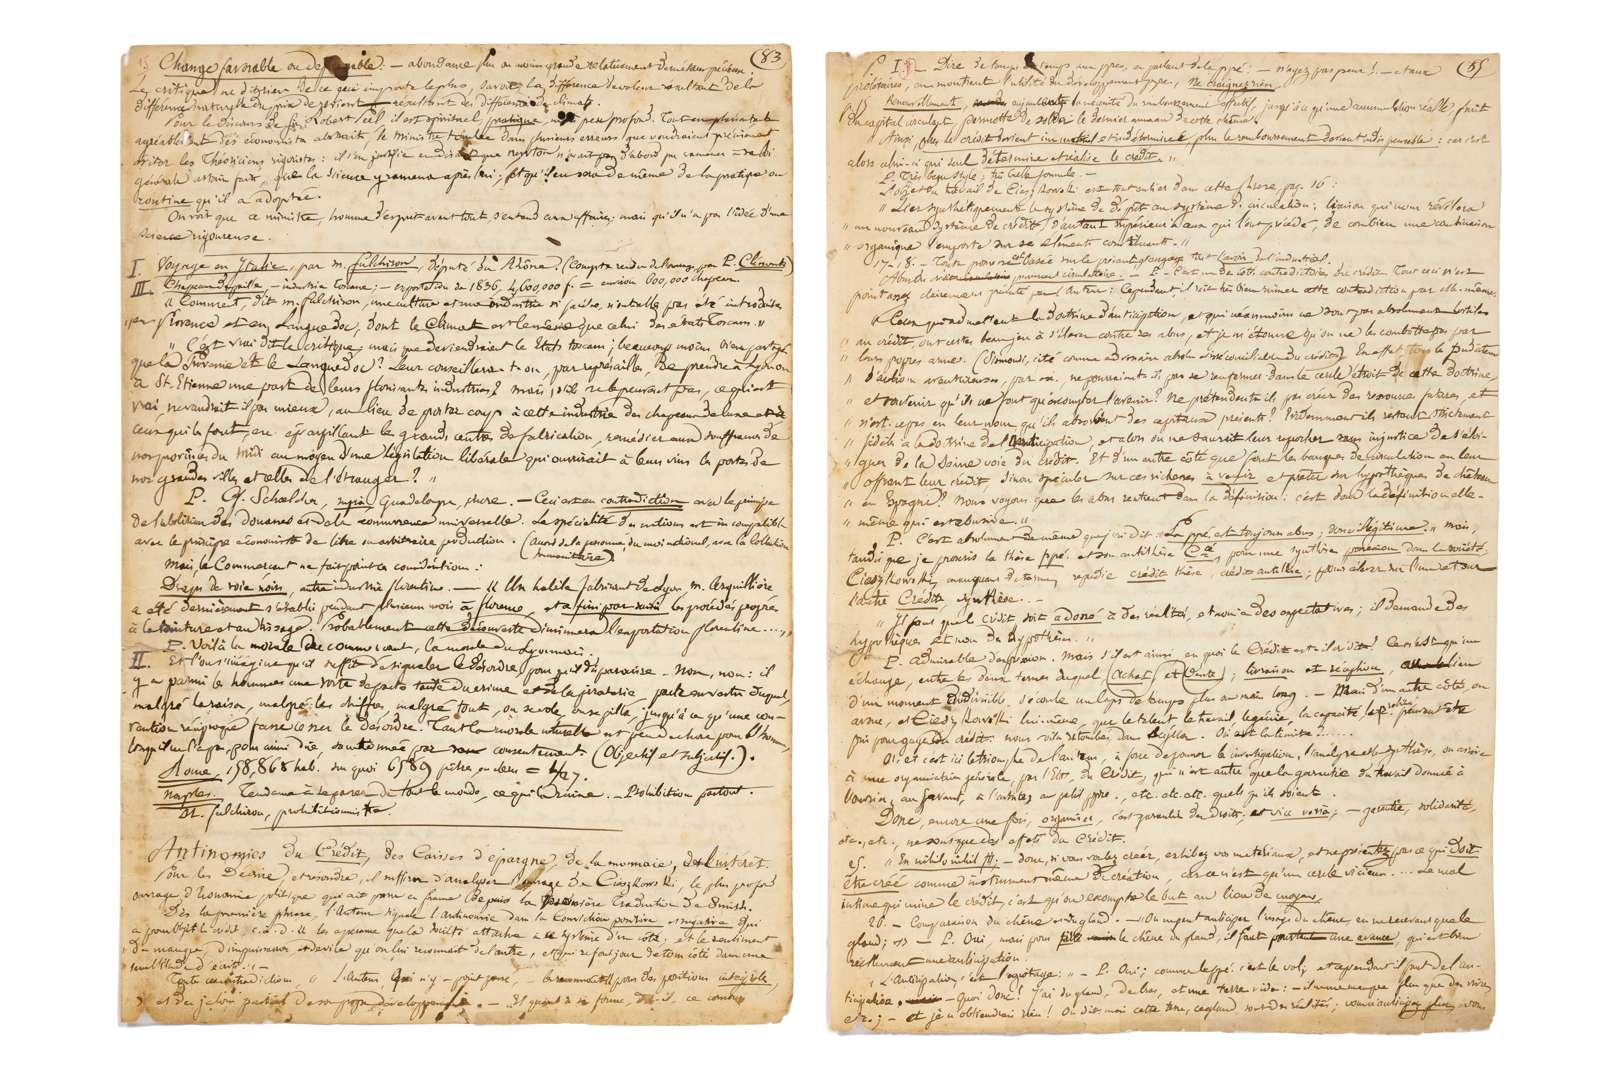 83
15 Change favorable ou — abondance plus ou moins grande relativement des métaux précieux.
Le critique ne dit rien de ce qui importe le plus, savoir la différence de valeur résultant de la
différence naturelle du prix de revient résultant des différences de climats.
Pour le discours de Robert Peel il est spirituel, pratique, peu profond. Tout en plaisantant
agréablement des économistes abstraits, le ministre tombe dans plusieurs erreurs que voudraient
éviter les Théoriciens rigoristes: il s'en justifie en disant que Newton
générale; que la science y ramena après lui; et qu'il en sera de même de la pratique ou
routine qu'il a adoptée.
On voit que ce ministre, homme d'esprit avant tout, s'entend aux affaires; mais qu'il n'a pas l'idée d'une
science rigoureuse.
I. Voyage en Italie, par M. Fulchiron, député du Rhône. (Compte rendu par P. Clément)
III. Chapeaux de paille, — industrie toscane; — exportation de 1836, 4,000,000 f. = environ 600,000 chapeaux.
« Comment, dit M. Fulchiron, une culture et une industrie si faciles, n'ont-elles pas été introduites
« en Provence et en Languedoc, dont le climat est le même que celui des états Toscans. »
« C'est vrai dit le critique, mais que deviendraient les Etats toscans; beaucoup moins bien partagés
que la Provence et le Languedoc? Leur conseillera-t-on, par représailles, de prendre à Lyon ou
à St-Etienne une part de leurs florissantes industries? Mais s'ils ne le peuvent pas, ce qui est
vrai, ne vaudrait-il pas mieux, au lieu de porter coup à cette industrie des chapeaux de
ceux qui la font, en éparpillant les grands centres de fabrication, remédier aux souffrances de
nos provinces du Midi au moyen d'une législation libérale qui ouvrirait à leurs vins les portes de
nos grandes villes et celles de l'étranger? »
P. Cf. Schœlcher, suprà, Guadeloupe, sucre. — Ceci est en contradiction avec le principe
de l'abolition des douanes et de la concurrence universelle. La spécialité des nations est incompatible
avec le principe économiste de libre ou arbitraire production. (Accord de la personne, du moi national, avec la collection
humanitaire).
Mais le Commerçant ne fait point ces considérations:
Draps de soie noirs, autre industrie florentine. — « Un habile fabricant de Lyon M. Arquillière
a été dernièrement s'établir pendant plusieurs mois à Florence, et a fini par saisir les procédés propres
à la teinture et au tissage. Probablement cette découverte diminuera l'exportation florentine.... »
P. Voilà la morale du commerçant, la morale du Lyonnais.
II. Et l'on s'imagine qu'il suffit de signaler le désordre, pour qu'il disparaisse. Non, non: il
y a parmi les hommes une sorte de pacte tacite du crime et de la piraterie, pacte en vertu duquel,
malgré la raison, malgré les chiffres, malgré tout, on se vole, on se pille, jusqu'à ce qu'une convention
réciproque fasse cesser le désordre. Tant la morale naturelle est peu de chose pour l'homme,
lorsqu'il ne l'a pas, pour ainsi dire, sanctionnée par consentement. (Objectif et subjectif.)
Rome. 158,868 hab. sur quoi 6589 prêtres, ou clercs = 1/27.
Naples. Tendance à se passer de tout le monde, ce qui la ruine. — Prohibition partout.
M. Fulchiron, prohibitionniste.
Antinomies du Crédit, des Caisses d'épargne, de la monnaie, de l'intérêt
Pour les Décrire, et résoudre, il suffira d'analyser l'ouvrage de Cieszkowski, le plus profond
ouvrage d'économie politique qui ait paru en France depuis la première Traduction de Smith.
Dès la première phrase, l'auteur signale l'antinomie dans la conviction positive et négative qui
a pour objet le crédit, c.à.d. les espérances que la société attache à ce système d'un côté; et le sentiment
du manque, d'impuissance et de vide qu'on lui reconnaît de l'autre, et qui se fait jour de tous côtés dans une
multitude d'écrits. » —
Toute contradiction, « l'auteur, — reconnaît pas des positions intégrales,
et du jalon partiel de son propre développement. — Et quant à sa forme, dit-il, ce
85
P. I — Dire de temps en temps aux pprres, en parlant de la ppté: — n'ayez pas peur! — et aux
prolétaires, en montrant l'utilité du développement pprre, ne craignez rien.
Renouvellement, aujourd'hui nécessité du remboursement effectif, jusqu'à ce qu'une accumulation réalisée, fruit
du capital circulant, permette de solder le dernier anneau de cette chaîne.
« Ainsi, plus le crédit devient immatériel et indéterminé, plus le remboursement devient indispensable: car c'est
alors celui-ci qui seul détermine et réalise le crédit. »
P. Très beau style; très belle formule. —
L'objet du travail de Cieszkowski est tout entier dans cette phrase, pag. 16:
« Lier synthétiquement le système de dépôt au système de circulation; liaison qui nous révélera
« un nouveau système de crédit, d'autant supérieur à ceux qui l'ont précédé, de combien une combinaison
« organique l'emporte sur ses éléments constituants. »
17-18. — Toute basée sur le présent engage tout l'avoir de l'industriel.
Abus du papier circulatoire. — P. — C'est un de côtés contradictoires du crédit. Tout ceci n'est
point assez clairement présenté par l'auteur: Cependant, il vise très bien ruiner cette contradiction par elle-même.
« Ceux qui admettent la doctrine d'anticipation, et qui néanmoins ne sont pas absolument hostiles
« au crédit, ont certes beau jeu à s'élever contre ces abus, et je m'étonne qu'on ne les combatte pas par
« leurs propres armes. (Sismondi, cité comme adversaire absolu irréconciliable du crédit). En effet, tous les fondateurs
« d'actions aventureuses, par ex., ne pourraient-ils pas se renfermer dans le cercle étroit de cette doctrine,
« et soutenir qu'ils ne font qu'escompter l'avenir? Ne prétendent-ils pas créer des ressources futures, et
« n'est-ce pas en leur nom qu'ils absorbent des capitaux présents? Evidemment ils restent strictement
« fidèles à la doctrine de l'anticipation, et alors on ne saurait leur reprocher sans injustice de s'éloigner
de la saine voie du crédit. Et d'un autre côté que font les banques de circulation en leur
« offrant leur crédit, sinon spéculer sur ces richesses à venir et prêter sur hypothèques de châteaux
« en Espagne? Nous voyons que les abus rentrent dans la définition: c'est donc la définition elle-
« même qui est abusive. »
P. C'est absolument de même que j'ai dit: « La ppté est toujours abus, donc illégitime. » Mais,
tandis que je prends la thèse ppté. et son antithèse Cté, pour une synthèse possession dans la société,
Cieszkowski, manquant de termes, répudie crédit thèse, crédit antithèse; pour élever sur l'un et sur
l'autre Crédit, synthèse....
« Il faut que le crédit soit adossé à des réalités, et non à des expectatives; il demande des
hypothèques et non des hypothèses. »
P. Admirable d'expression. Mais s'il est ainsi, en quoi le Crédit est-il crédit? Ce n'est qu'un
échange, entre les deux termes duquel (Achat et Vente); livraison et réception, au lieu
d'un moment indivisible, s'écoule un laps de temps plus ou moins long. — Mais d'un autre côté, on
avoue, et Cieszkowski lui-même, que le talent, le travail, le génie, la capacité, peuvent être
pris pour gages du crédit. Nous voilà retombés dans Où est la limite?.....
Or, et c'est ici le triomphe de l'auteur, à force de pousser la investigation, l'analyse et la synthèse, on arrive
à une organisation générale, par l'Etat, du Crédit, qui n'est autre que la garantie du travail donnée à
l'ouvrier, au savant, à l'artiste, au petit ppre., etc. etc. etc. quels qu'ils soient.
Donc, encore une fois, organiser, c'est garantir des Droits, et vice versâ; — garantie, solidarité,
etc., etc., ne sont que des effets du Crédit.
« En nihilo nihil fit; — donc, si vous voulez créer, exhibez vos matériaux, et ne présentez pas ce qui doit
être créé comme instrument même de création, car ce n'est qu'un cercle vicieux.... Le mal
intime qui mine le crédit, c'est qu'on escompte le but au lieu de moyens.
20. — Comparaison du chêne et du gland. — « On ne peut anticiper l'usage du chêne, en ne recevant que le
gland; » — P. Oui, mais pour le chêne du gland, il faut pourtant une avance, qui est bien
réellement une anticipation.
« L'anticipation c'est l'agiotage: » — P. Oui; comme la ppté. c'est le vol; et cependant il faut de l'anticipation.
— Quoi donc! J'ai du gland, des bras, et une terre vide: — il ne me manque plus que des vivres,
etc.; — et je n'obtiendrai rien! On dit mais cette terre, ce gland, sont des réalités;